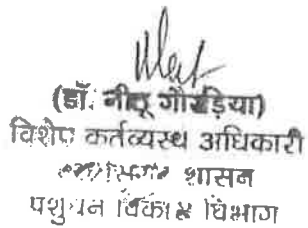 (डॉ. नीतू गौरड़िया)
विशेष कर्तव्यस्थ अधिकारी
शासन
पशुधन विकास विभाग